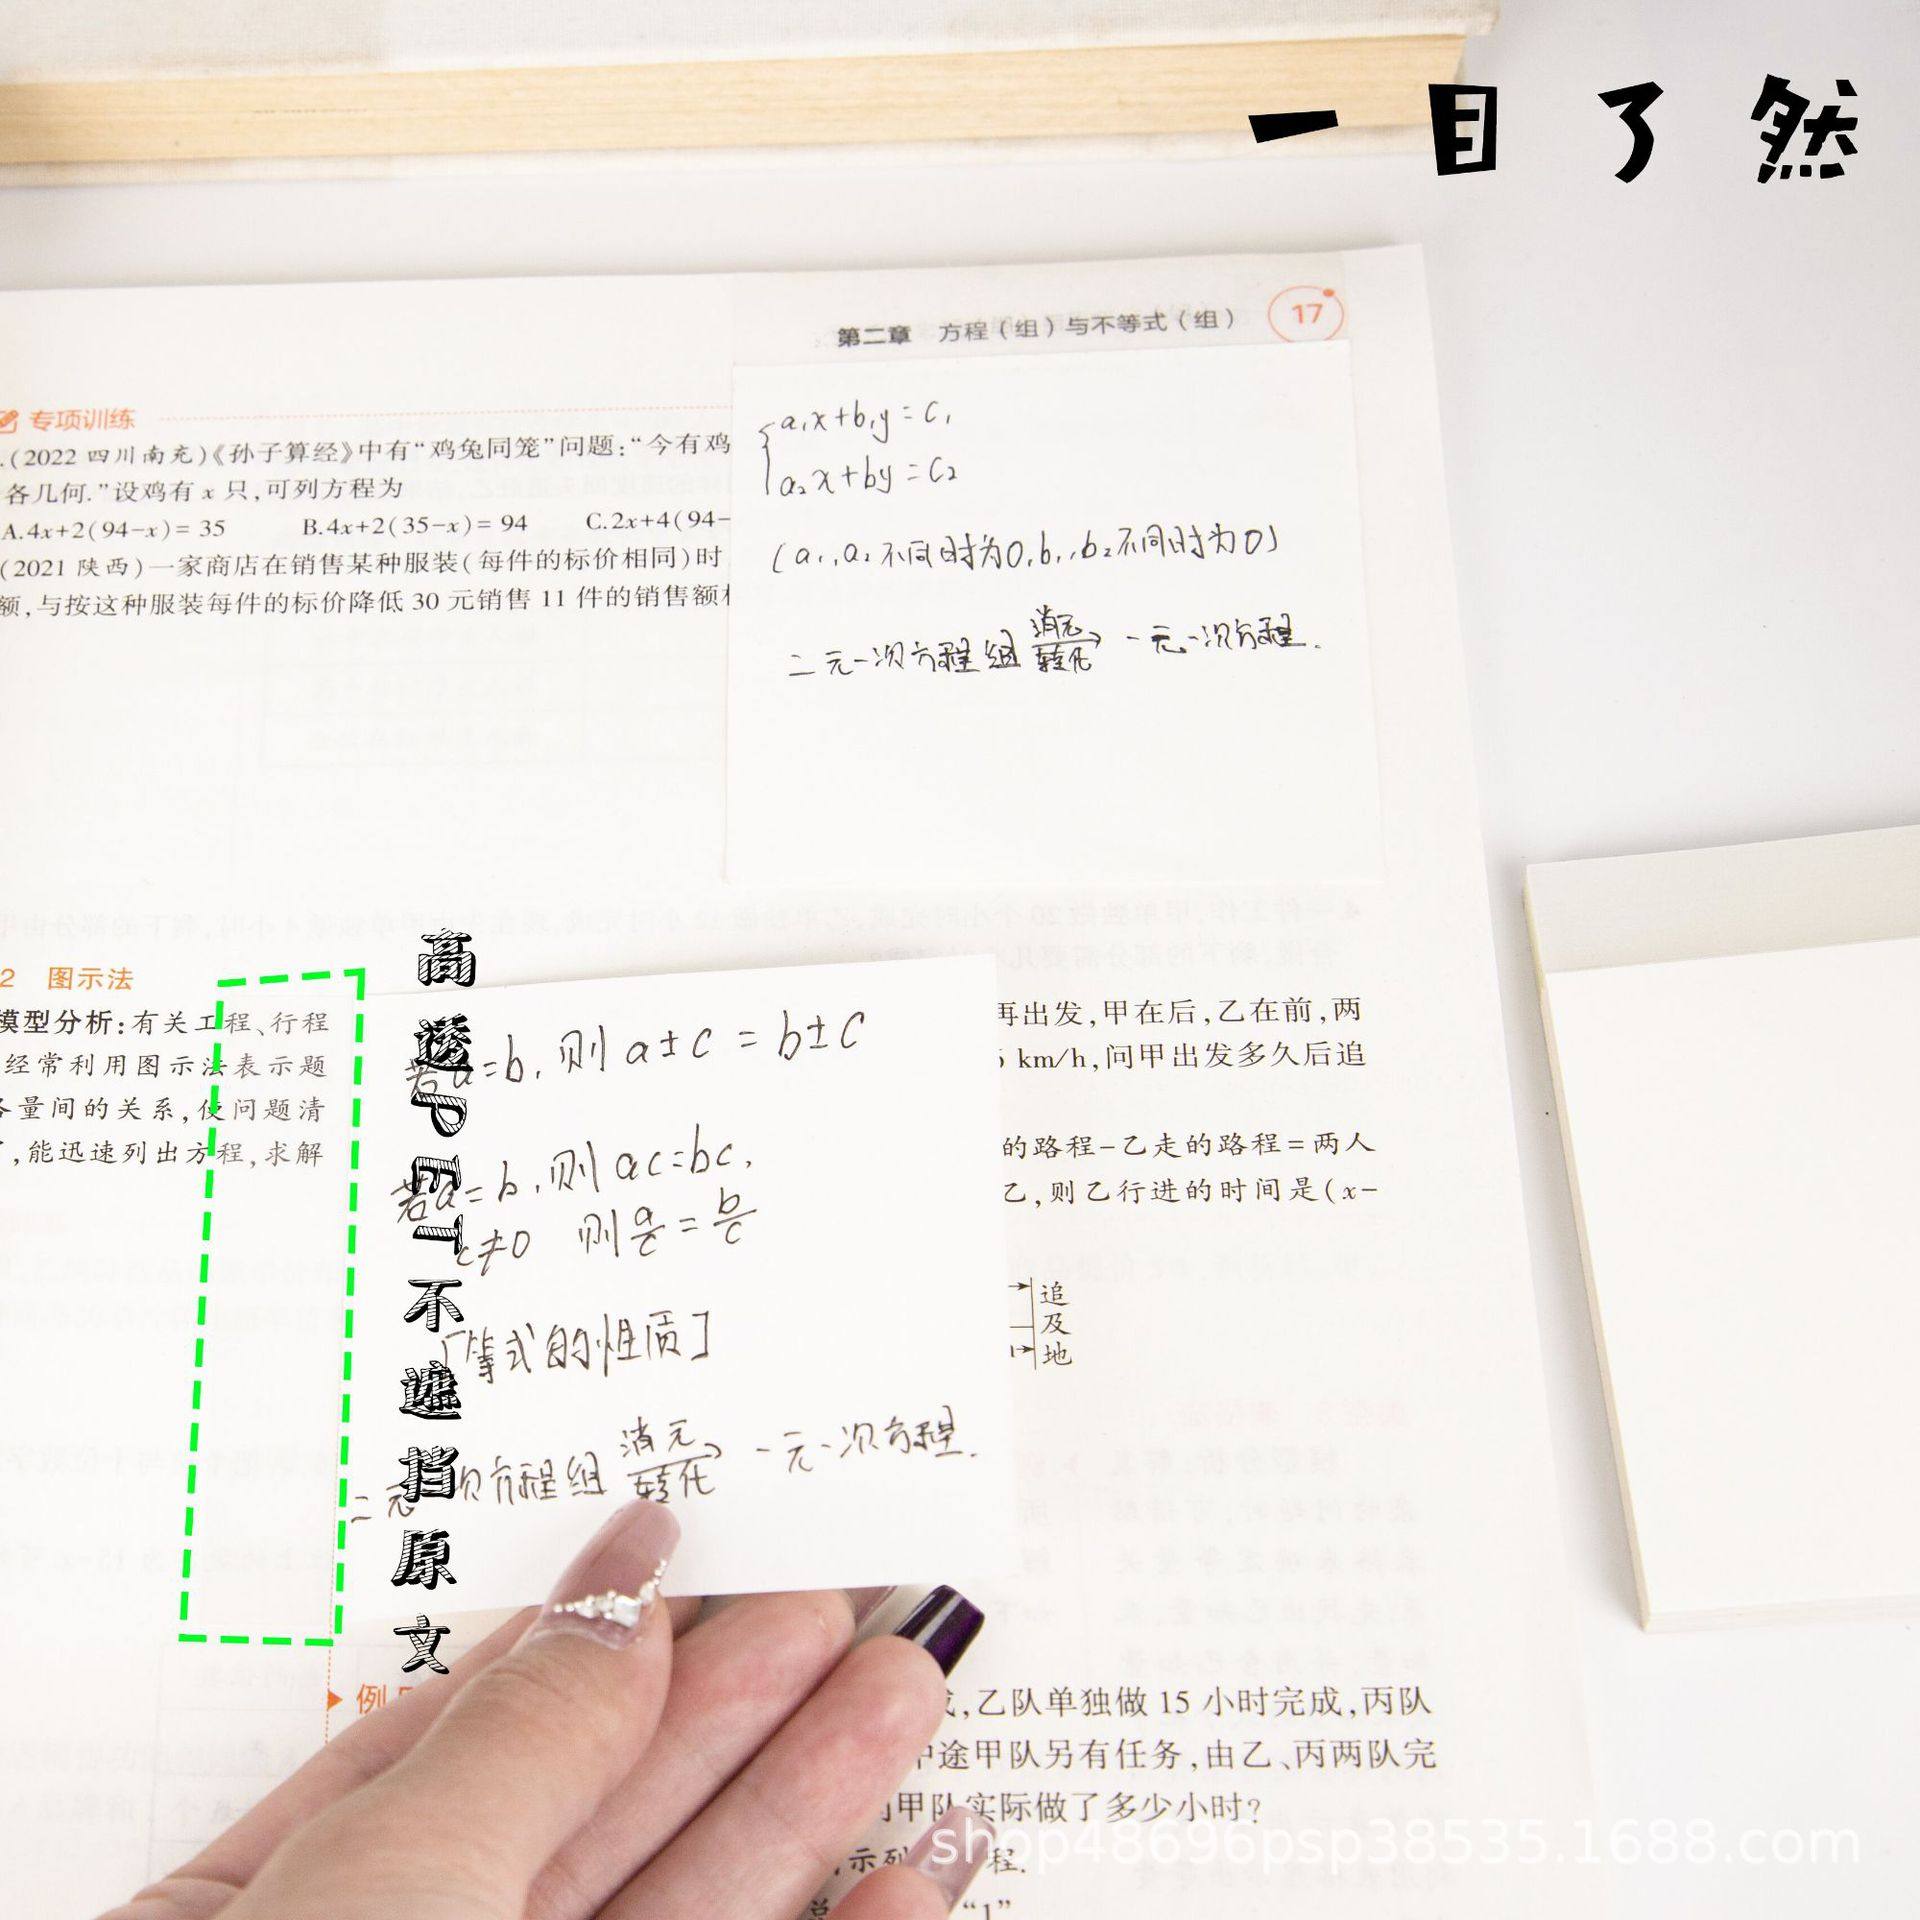 一目了然
第二章 方程(组)与不等式(组) 17
专项训练
.(2022 四川南充)《孙子算经》中有“鸡兔同笼”问题:“今有鸡
各几何.”设鸡有 x 只,可列方程为
A.4x+2(94-x)= 35 B.4x+2(35-x)= 94 C.2x+4(94-
(2021 陕西)一家商店在销售某种服装(每件的标价相同)时
额,与按这种服装每件的标价降低 30 元销售 11 件的销售额
a₁x+b₁y=c₁
a₂x+by=c₂
(a₁,a₂不同时为0,b₁,b₂不同时为0)
消元
二元一次方程组 → 一元一次方程.
转化
2 图示法
模型分析:有关工程、行程
经常利用图示法表示题
各量间的关系,使问题清
,能迅速列出方程,求解
高透PET不遮挡原文
若a=b,则a±c=b±c
若a=b,则ac=bc,
c≠0 则a/c=b/c
「等式的性质]
消元
二元 次方程组 → 一元一次方程.
转化
再出发,甲在后,乙在前,两
km/h,问甲出发多久后追
的路程-乙走的路程=两人
乙,则乙行进的时间是(x-
追
及
地
例
,乙队单独做 15 小时完成,丙队
中途甲队另有任务,由乙、丙两队完
甲队实际做了多少小时?
示列 程.
“1”
shop48696psp38535.1688.com